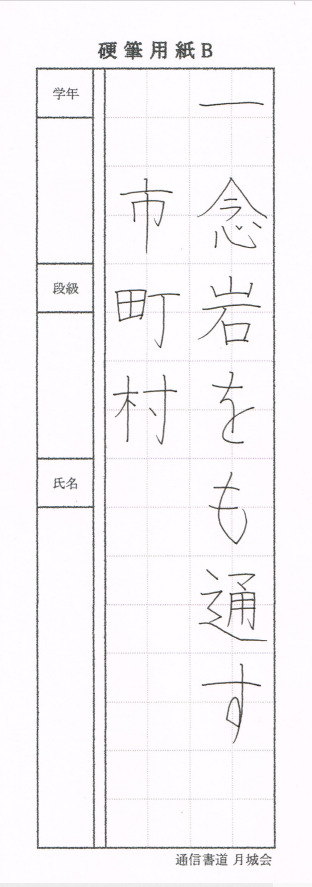 硬筆用紙B
一念岩をも通す
市町村
学年
段級
氏名
通信書道 月城会